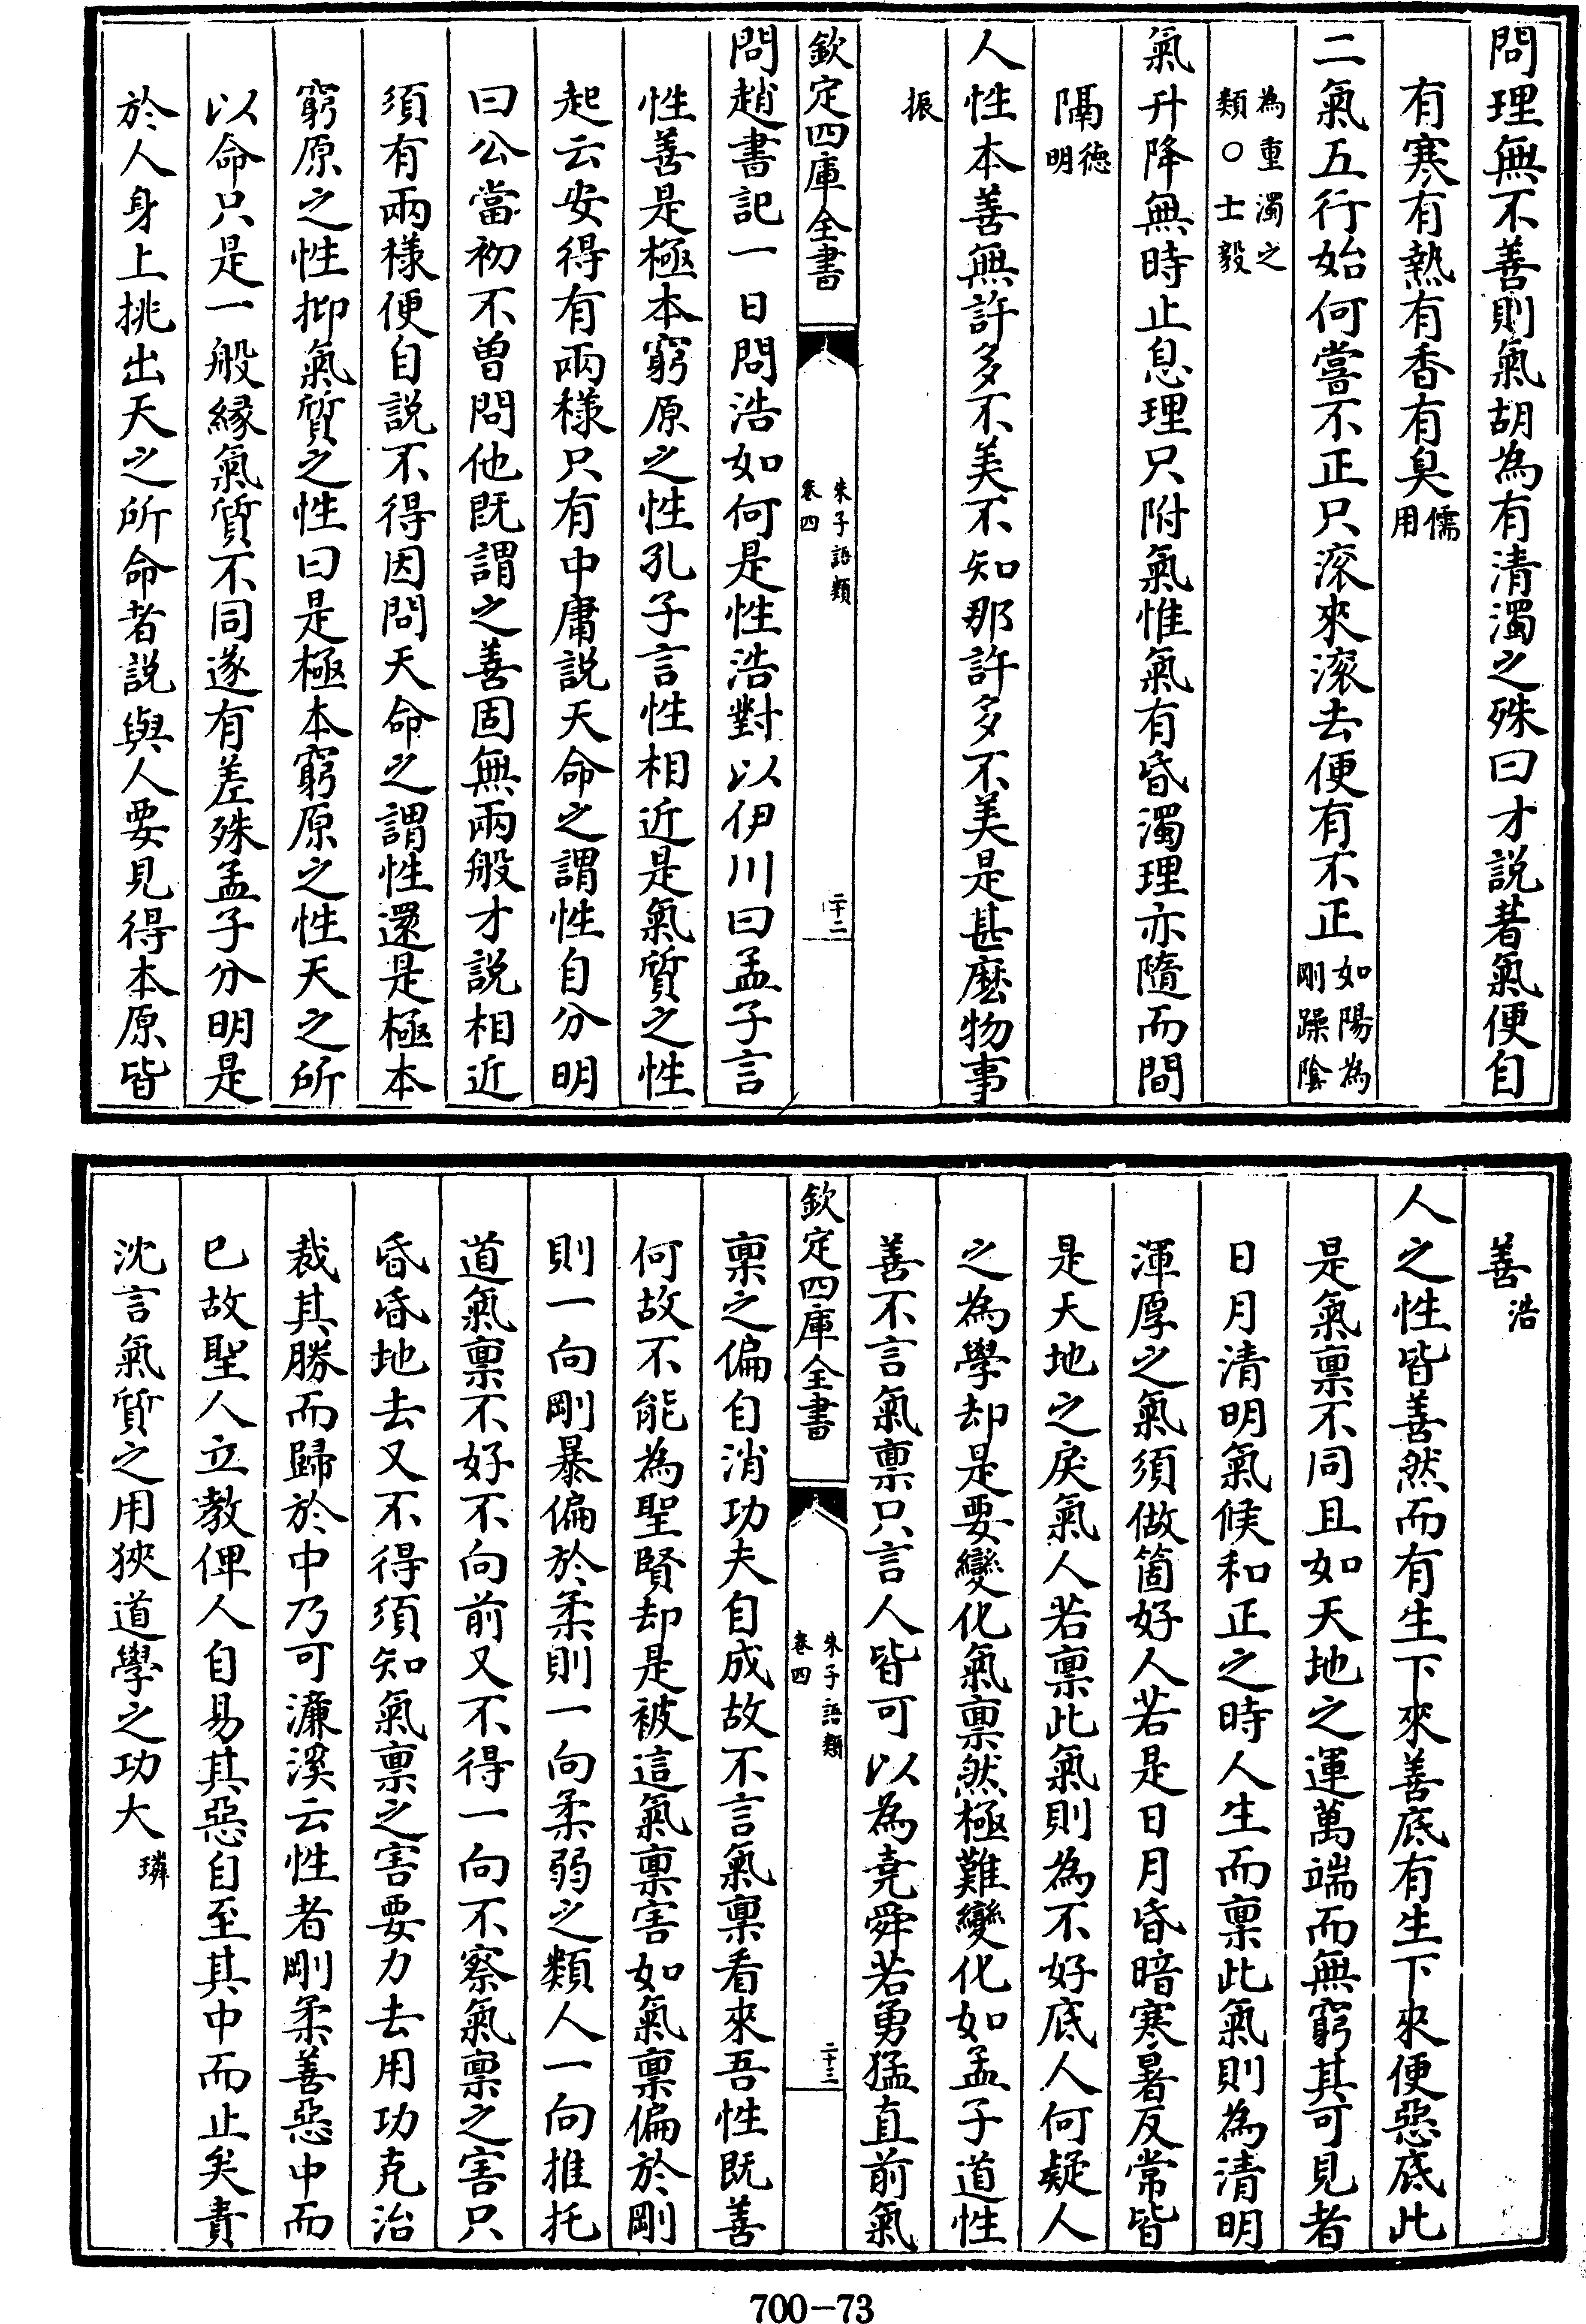 問理無不善則氣胡為有清濁之殊曰才説著氣便自
有寒有熱有香有臭儒
用
二氣五行始何嘗不正只滚來滚去便有不正如陽為
剛躁陰
為重濁之
類○士毅
氣升降無時止息理只附氣惟氣有昏濁理亦隨而間
隔德
明
人性本善無許多不美不知那許多不美是甚麽物事
振
欽定四庫全書
朱子語類
卷四
二十二
問趙書記一日問浩如何是性浩對以伊川曰孟子言
性善是極本窮原之性孔子言性相近是氣質之性
起云安得有兩様只有中庸説天命之謂性自分明
曰公當初不曽問他既謂之善固無兩般才説相近
須有兩様便自説不得因問天命之謂性還是極本
窮原之性抑氣質之性曰是極本窮原之性天之所
以命只是一般縁氣質不同遂有差殊孟子分明是
於人身上挑出天之所命者説與人要見得本原皆
善浩
人之性皆善然而有生下來善底有生下來便惡底此
是氣禀不同且如天地之運萬端而無窮其可見者
日月清明氣候和正之時人生而禀此氣則為清明
渾厚之氣須做箇好人若是日月昏暗寒暑反常皆
是天地之戾氣人若禀此氣則為不好底人何疑人
之為學却是要變化氣禀然極難變化如孟子道性
善不言氣禀只言人皆可以為堯舜若勇猛直前氣
欽定四庫全書
朱子語類
卷四
二十三
禀之偏自消功夫自成故不言氣禀看來吾性既善
何故不能為聖賢却是被這氣禀害如氣禀偏於剛
則一向剛暴偏於柔則一向柔弱之類人一向推托
道氣禀不好不向前又不得一向不察氣禀之害只
昏昏地去又不得須知氣禀之害要力去用功克治
裁其勝而歸於中乃可濂溪云性者剛柔善惡中而
已故聖人立教俾人自易其惡自至其中而止矣責
沈言氣質之用狹道學之功大璘
700-73